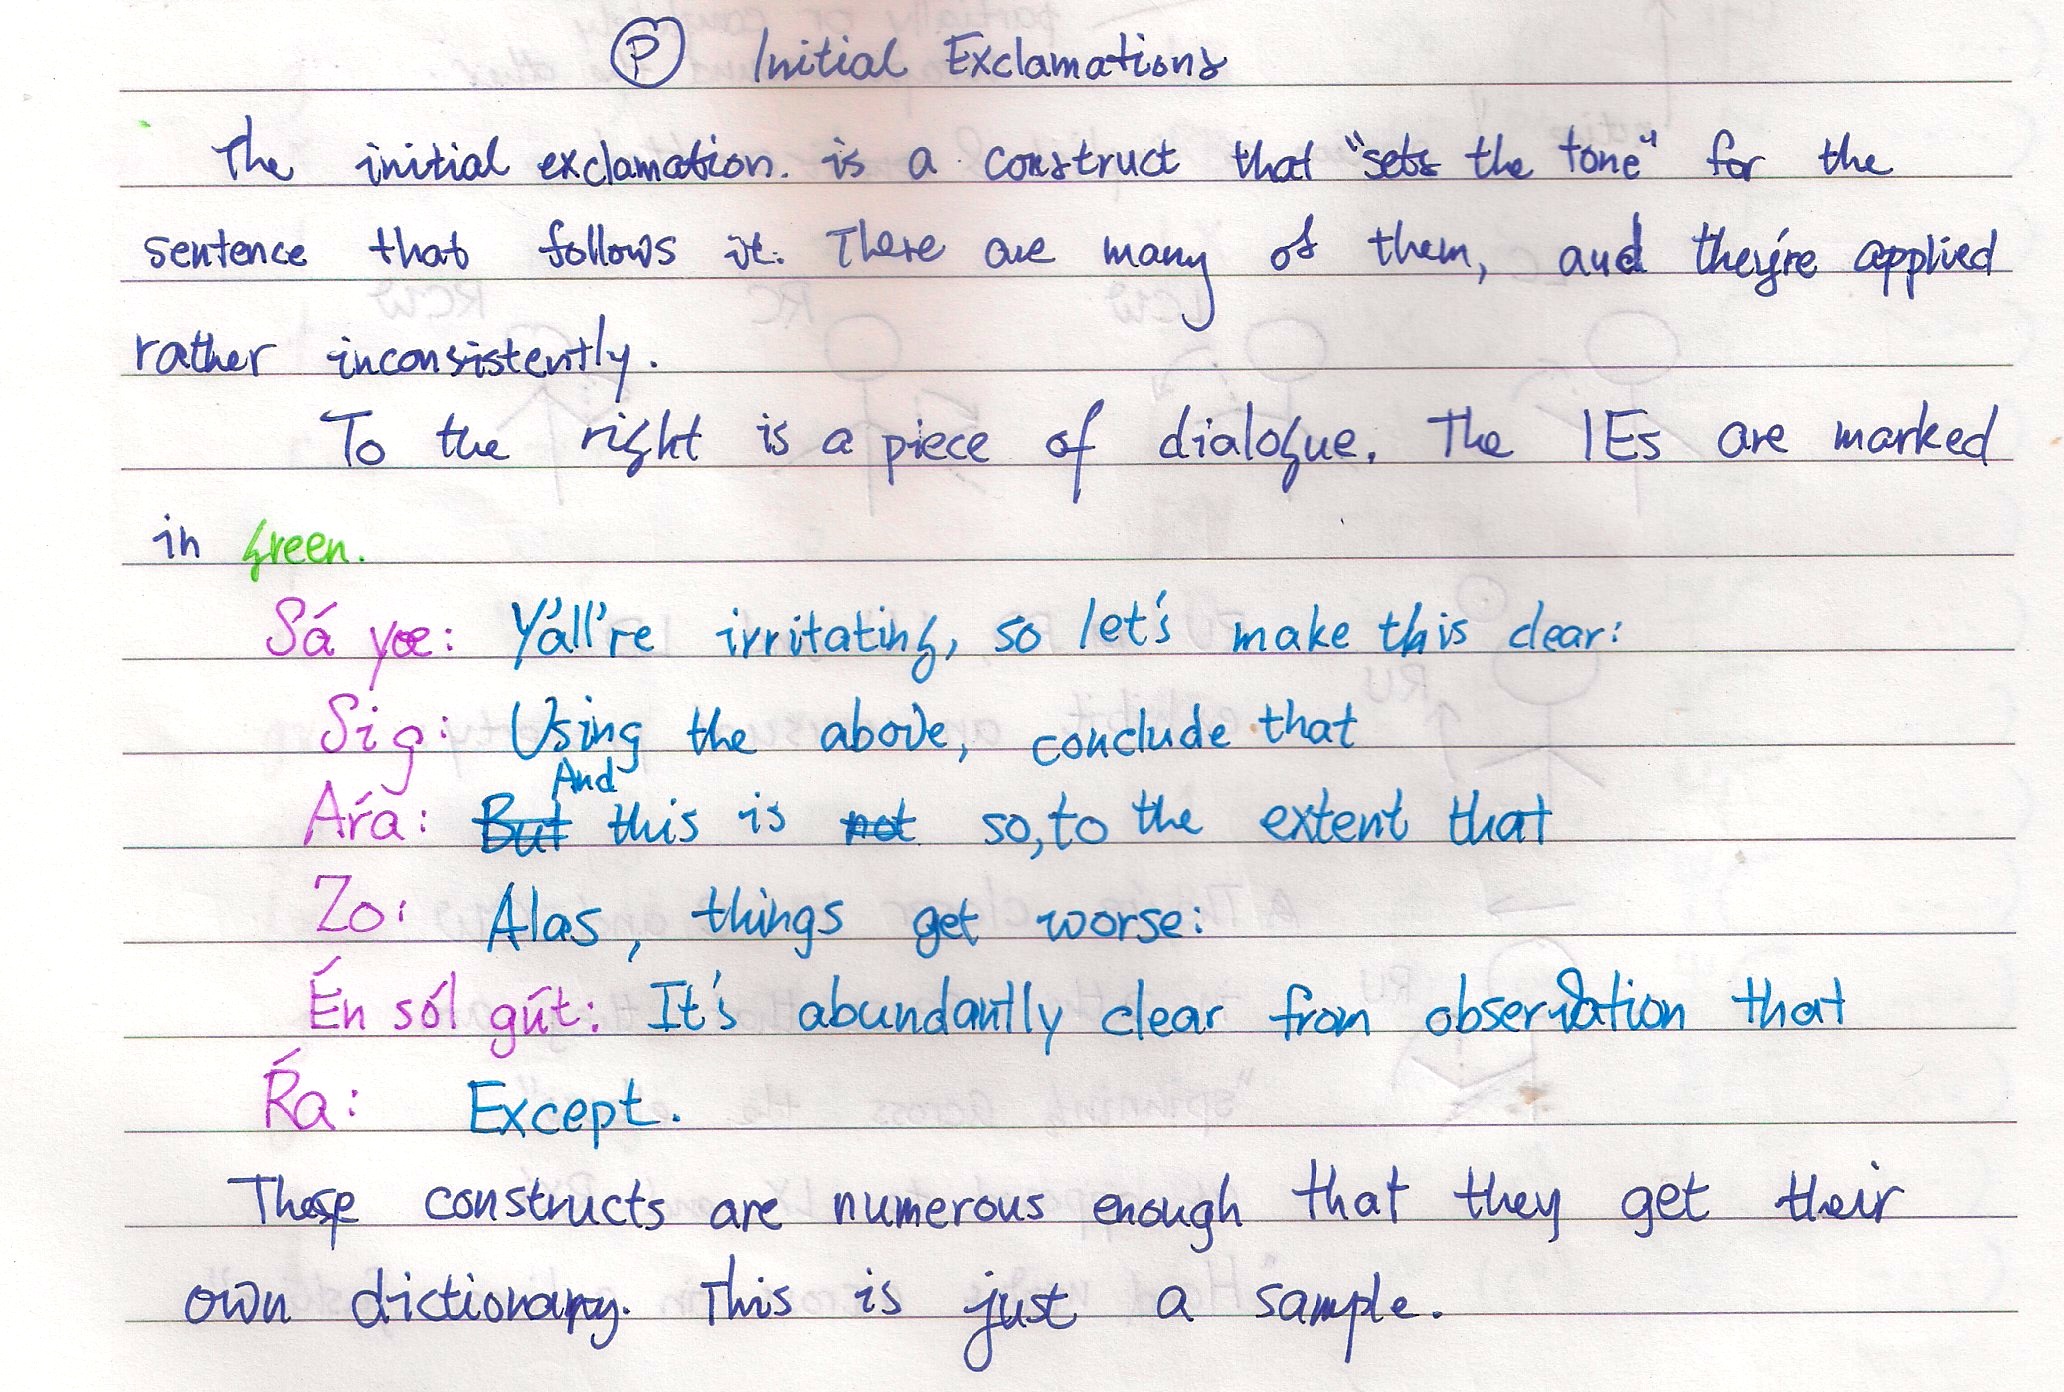 Ⓟ Initial Exclamations
The initial exclamation. is a construct that "sets the tone" for the
sentence that follows it. There are many of them, and they're applied
rather inconsistently.
To the right is a piece of dialogue. The IEs are marked
in green.
Sá yœ: Y'all're irritating, so let's make this clear:
Sig: Using the above, conclude that
And
Aŕa: But this is not so, to the extent that
Zo: Alas, things get worse:
Én sól gút: It's abundantly clear from observation that
Ŕa: Except.
These constructs are numerous enough that they get their
own dictionary. This is just a sample.